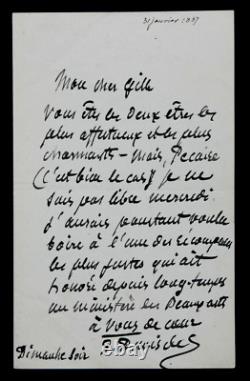 31 janvier 1887
Mon cher Gille
Vous êtes les deux êtres les
plus affectueux et les plus
charmants - Mais, Pécaïre
(C'est bien le cas) je ne
suis pas libre mercredi.
J'aurais pourtant voulu
boire à l'une des
les plus justes qu'ait
depuis longtemps
au ministère des Beaux arts
à Vous de cœur
Dimanche soir